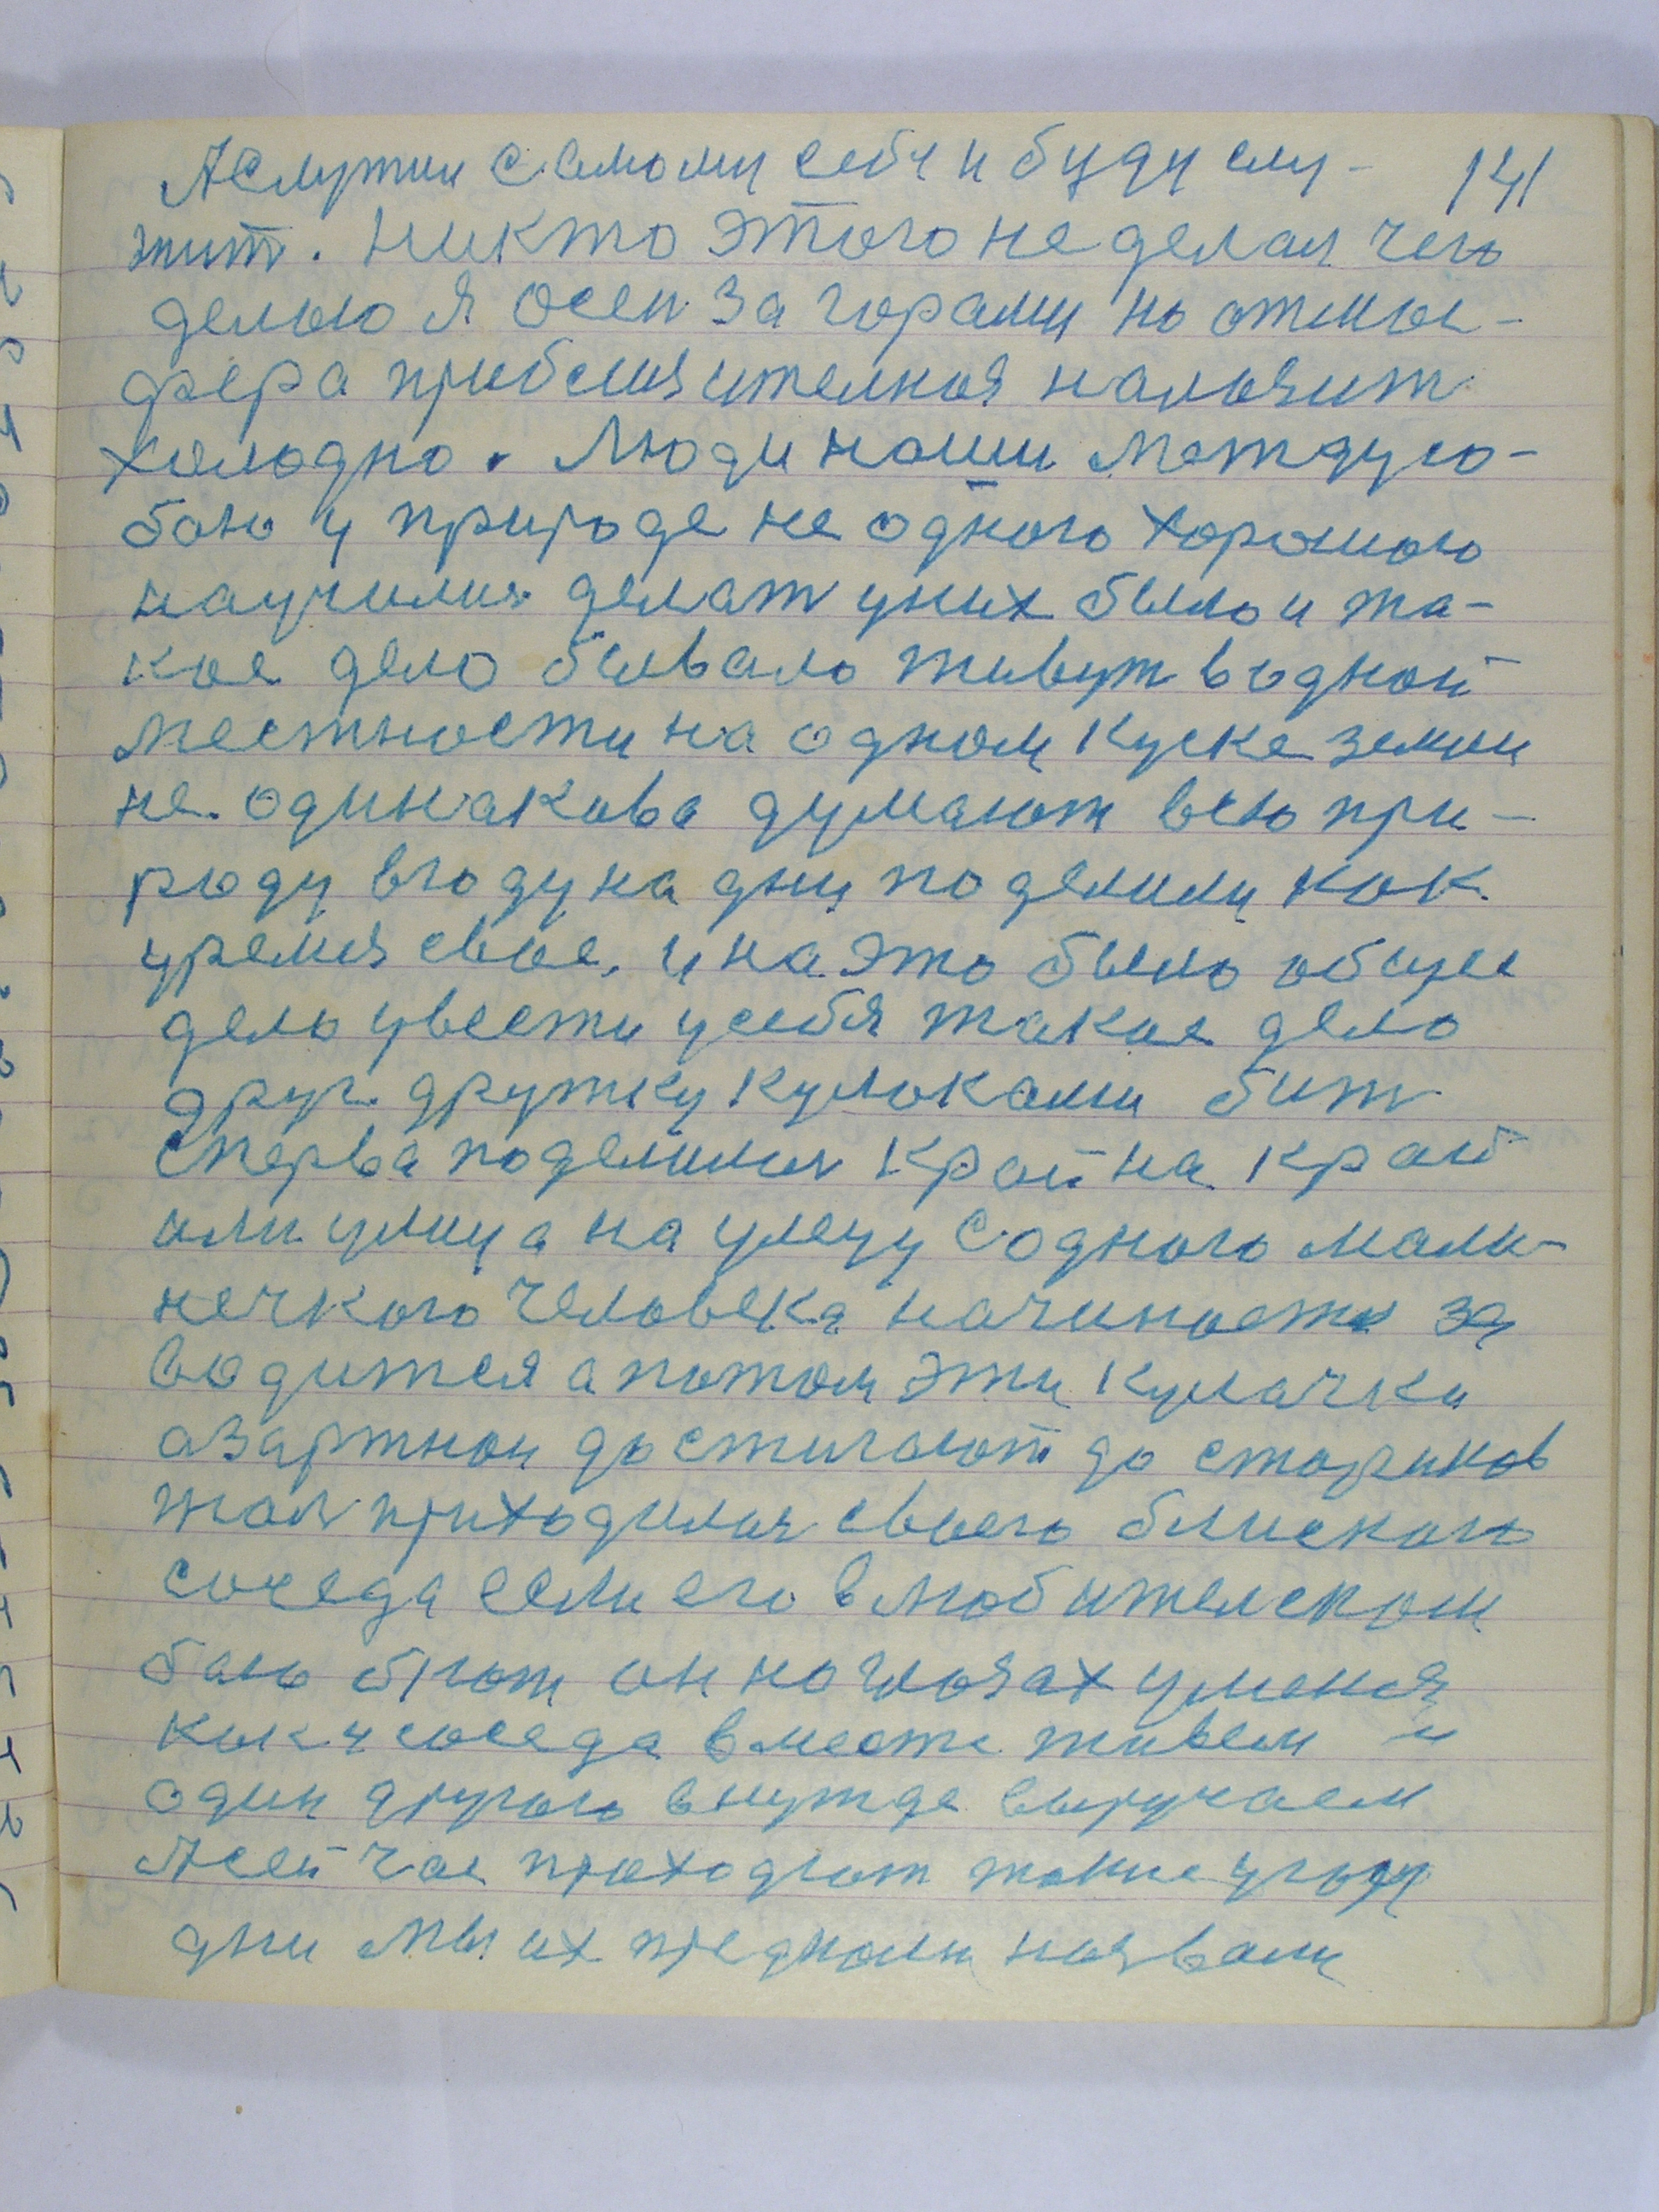 141
А служил самому себе и буду слу-
жит. Никто этого не делал чего
делаю я осен за горами но отмос-
фера приблизителная нализит
холодно. Люди наши между со-
бою у природе не одного хорошого
научилис делат у них было и та-
кое дело бывало живут в одной
местности на одном куске земли
не одинакова думают всю при-
роду в году на дни поделили как
уремя свое, и на это было общее
дело увести у себя такое дело
друг дружку кулоками бит
сперва поделилис край на край
или улица на улецу с одного мали-
нечкого человека начинаетс за
водится а потом эти кулачки
азартнои достигают до стариков
жал приходилос своего блиского
соседа если его в любителском
баю бют он на глазах у меня
как и соседа вместе живем и
один другого в нужде выручаем
А сейчас приходят такие
дни мы их предками назвали